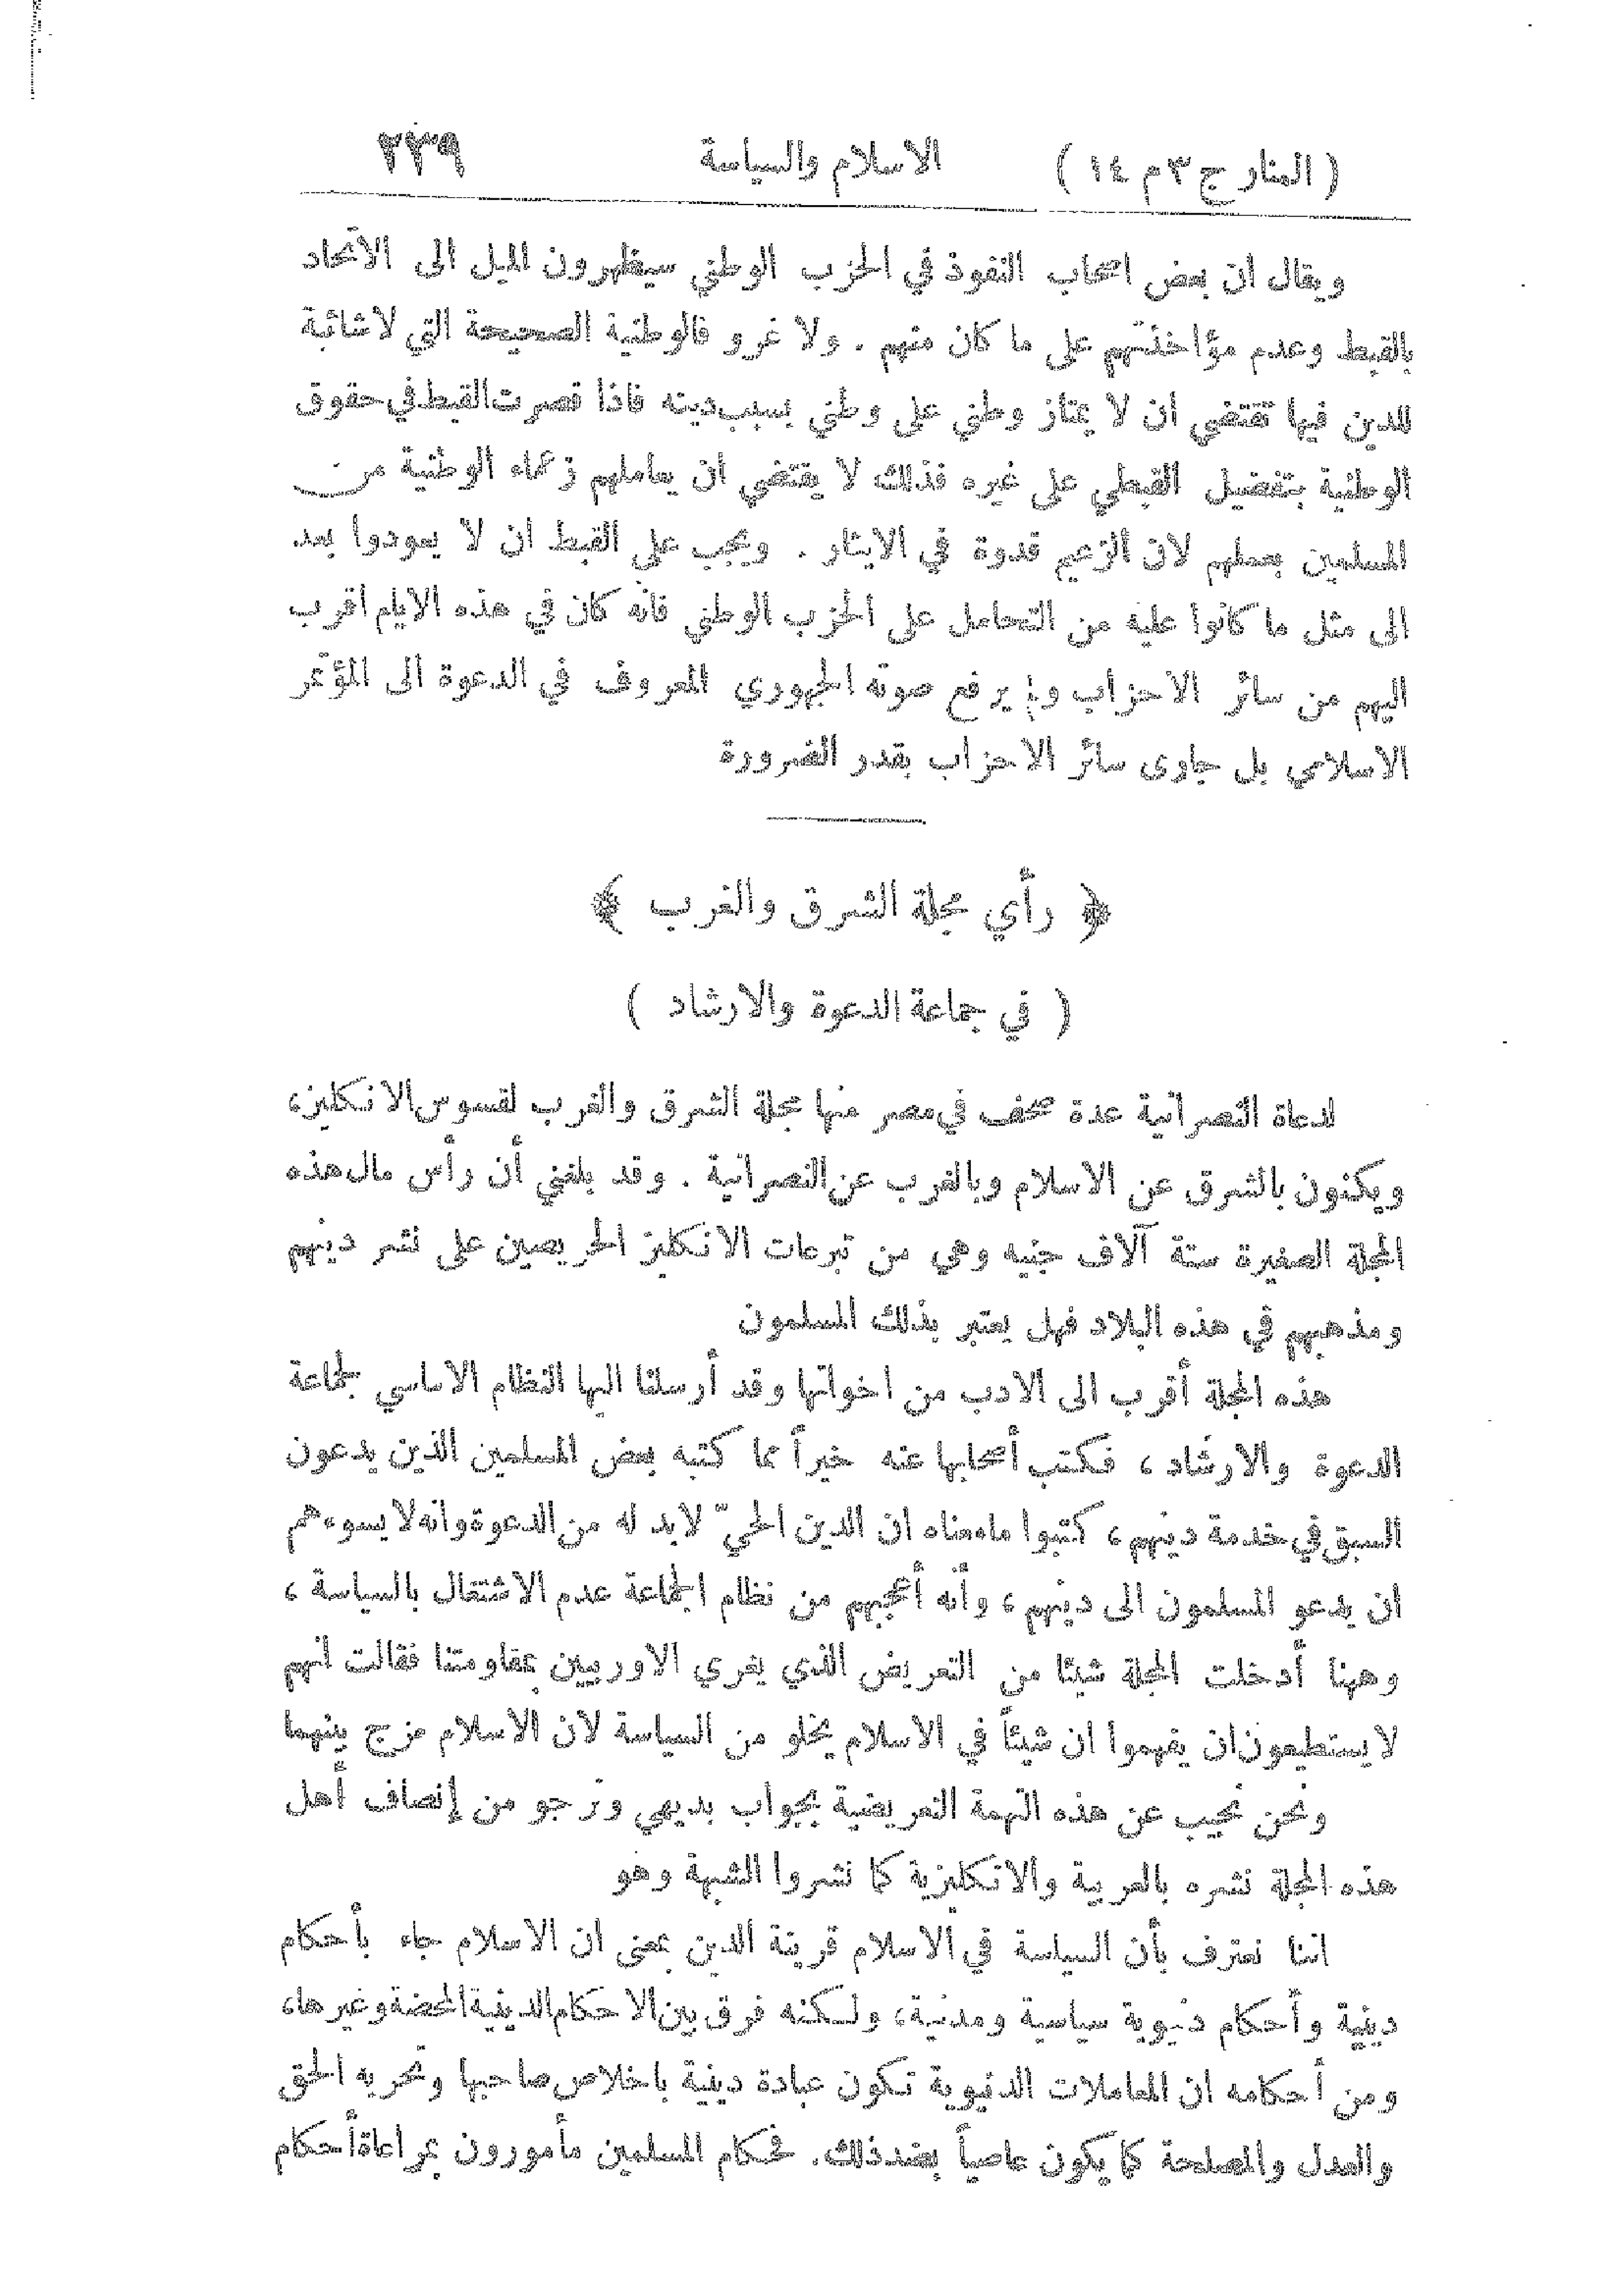 ( المنار ج ٣ م ١٤ ) الاسلام والسياسة ٢٣٩
ويقال ان بعض اصحاب النفوذ في الحزب الوطني سيظهرون الميل الى الاتحاد
بالقبط وعدم مؤاخذتهم على ما كان منهم . ولا غرو فالوطنية الصحيحة التي لا شائبة
للدين فيها تقتضي ان لا يمتاز وطني على وطني بسبب دينه فاذا قصرت القبط في حقوق
الوطنية بتفضيل القبطي على غيره فذلك لا يقتضي ان يعاملهم زعماء الوطنية من
المسلمين بعملهم لان الزعيم قدوة في الايثار . ويجب على القبط ان لا يعودوا بعد
الى مثل ما كانوا عليه من التحامل على الحزب الوطني فانه كان في هذه الايام أقرب
اليهم من سائر الاحزاب ولم يرفع صوته الجهوري المعروف في الدعوة الى المؤتمر
الاسلامي بل جارى سائر الاحزاب بقدر الضرورة
﴿ رأي مجلة الشرق والغرب ﴾
( في جماعة الدعوة والارشاد )
لدعاة النصرانية عدة صحف في مصر منها مجلة الشرق والغرب لقسوس الانكليز،
ويكنون بالشرق عن الاسلام وبالغرب عن النصرانية . وقد بلغني أن رأس مال هذه
المجلة الصغيرة ستة آلاف جنيه وهي من تبرعات الانكليز الحريصين على نشر دينهم
ومذهبهم في هذه البلاد فهل يعتبر بذلك المسلمون
هذه المجلة أقرب الى الادب من اخواتها وقد أرسلنا اليها النظام الاساسي لجماعة
الدعوة والارشاد ، فكتب أصحابها عنه خيراً مما كتبه بعض المسلمين الذين يدعون
السبق في خدمة دينهم ، كتبوا ما معناه ان الدين الحيّ لا بد له من الدعوة وانه لا يسوءهم
ان يدعو المسلمون الى دينهم ، وأنه أعجبهم من نظام الجماعة عدم الاشتغال بالسياسة ،
وههنا أدخلت المجلة شيئا من التعريض الذي يغري الاوربيين بمقاومتنا فقالت انهم
لا يستطيعون ان يفهموا ان شيئاً في الاسلام يخلو من السياسة لان الاسلام مزج بينهما
ونحن نجيب عن هذه التهمة التعريضية بجواب بديهي ونرجو من إنصاف أهل
هذه المجلة نشره بالعربية والانكليزية كما نشروا الشبهة وهو
اننا نعترف بأن السياسة في الاسلام قرينة الدين بمعنى ان الاسلام جاء بأحكام
دينية وأحكام دنيوية سياسية ومدنية، ولكنه فرق بين الاحكام الدينية المحضة وغيرها،
ومن أحكامه ان المعاملات الدنيوية تكون عبادة دينية باخلاص صاحبها وتحريه الحق
والعدل والمصلحة كما يكون عاصياً بضد ذلك. فحكام المسلمين مأمورون بمراعاة أحكام